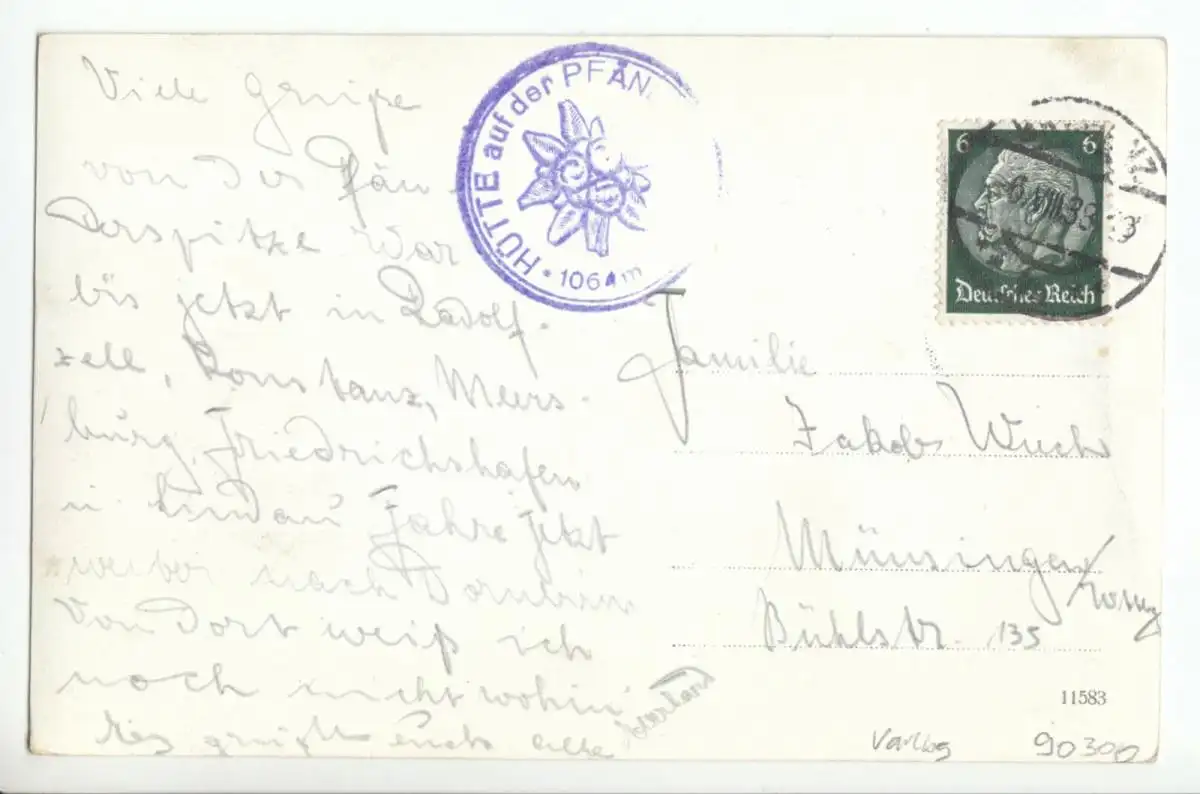 Viele Grüße
von der Pfän-
derspitze War
bis jetzt in Radolf-
zell, Konstanz, Meers-
burg, Friedrichshafen
u Lindau Fahre jetzt
weiter nach Dornbirn
Von Dort weiß ich
noch nicht wohin
Es grüßt Euch alle
HÜTTE auf der PFÄN
1064m
6 6
Deutsches Reich
Familie
Jakob
Münsingen
Bühlstr. 135
11583
Vorlbg
90300